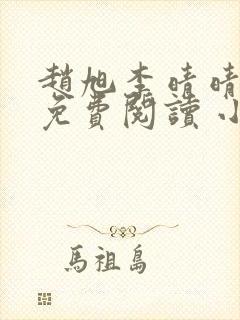 趙旭李晴晴
免費閱讀 小
馬祖島